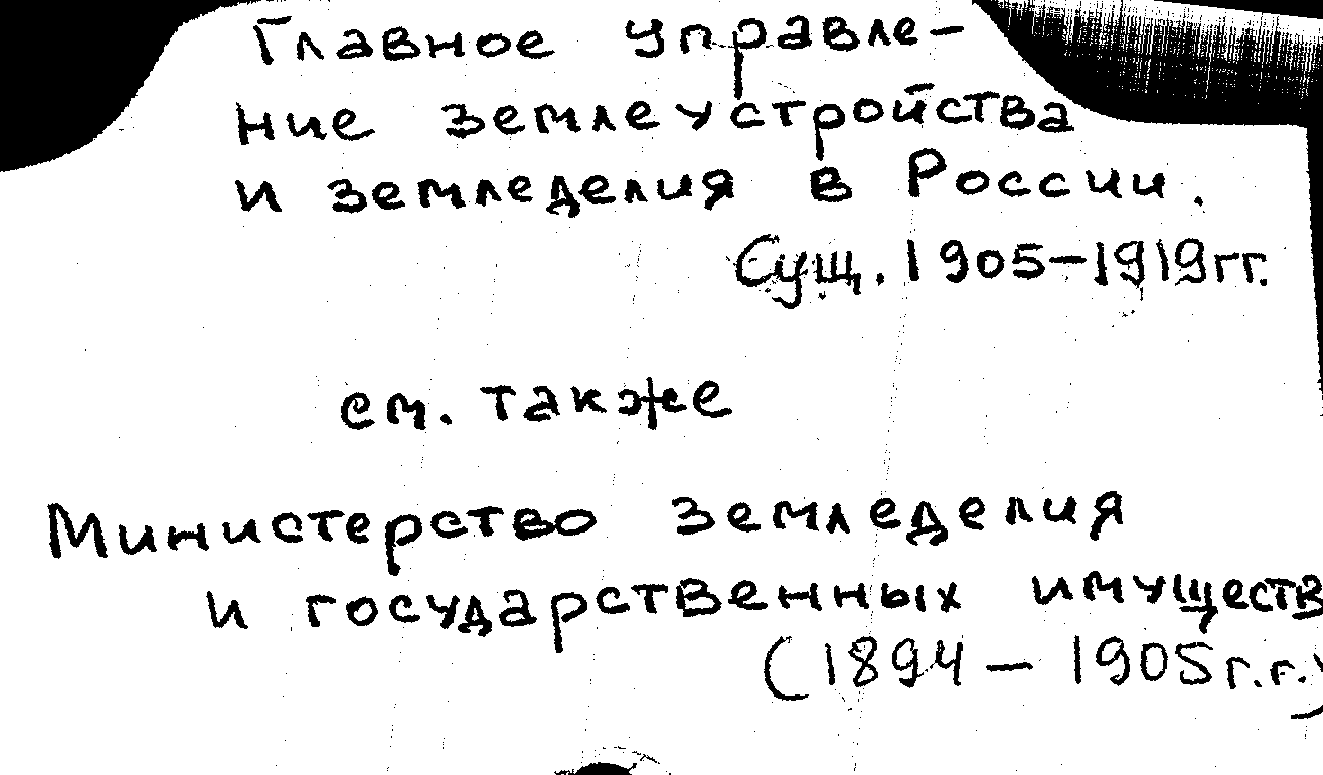 Главное управле-
ние землеустройства
и земледелия в России.
Сущ. 1905-1919гг.
см. также
Министерство земледелия
и государственных имуществ
(1894 - 1905г.г.)